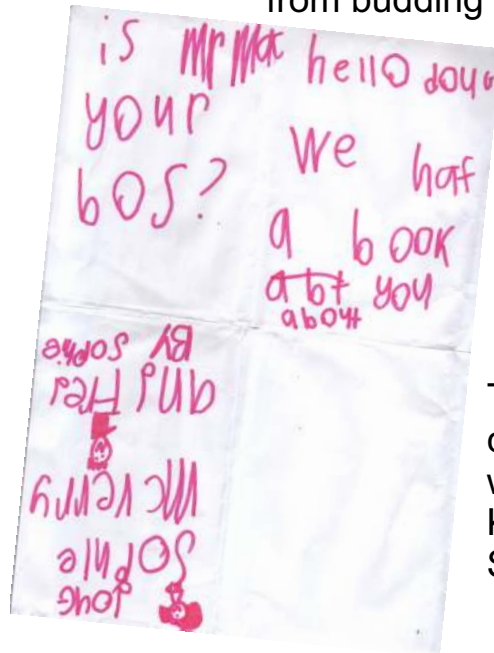 from budding
is Mr Mac
your
bos?
hello doug
we haf
a book
abt you
about
love
Sophie
Mcvenny
and
By Sophie